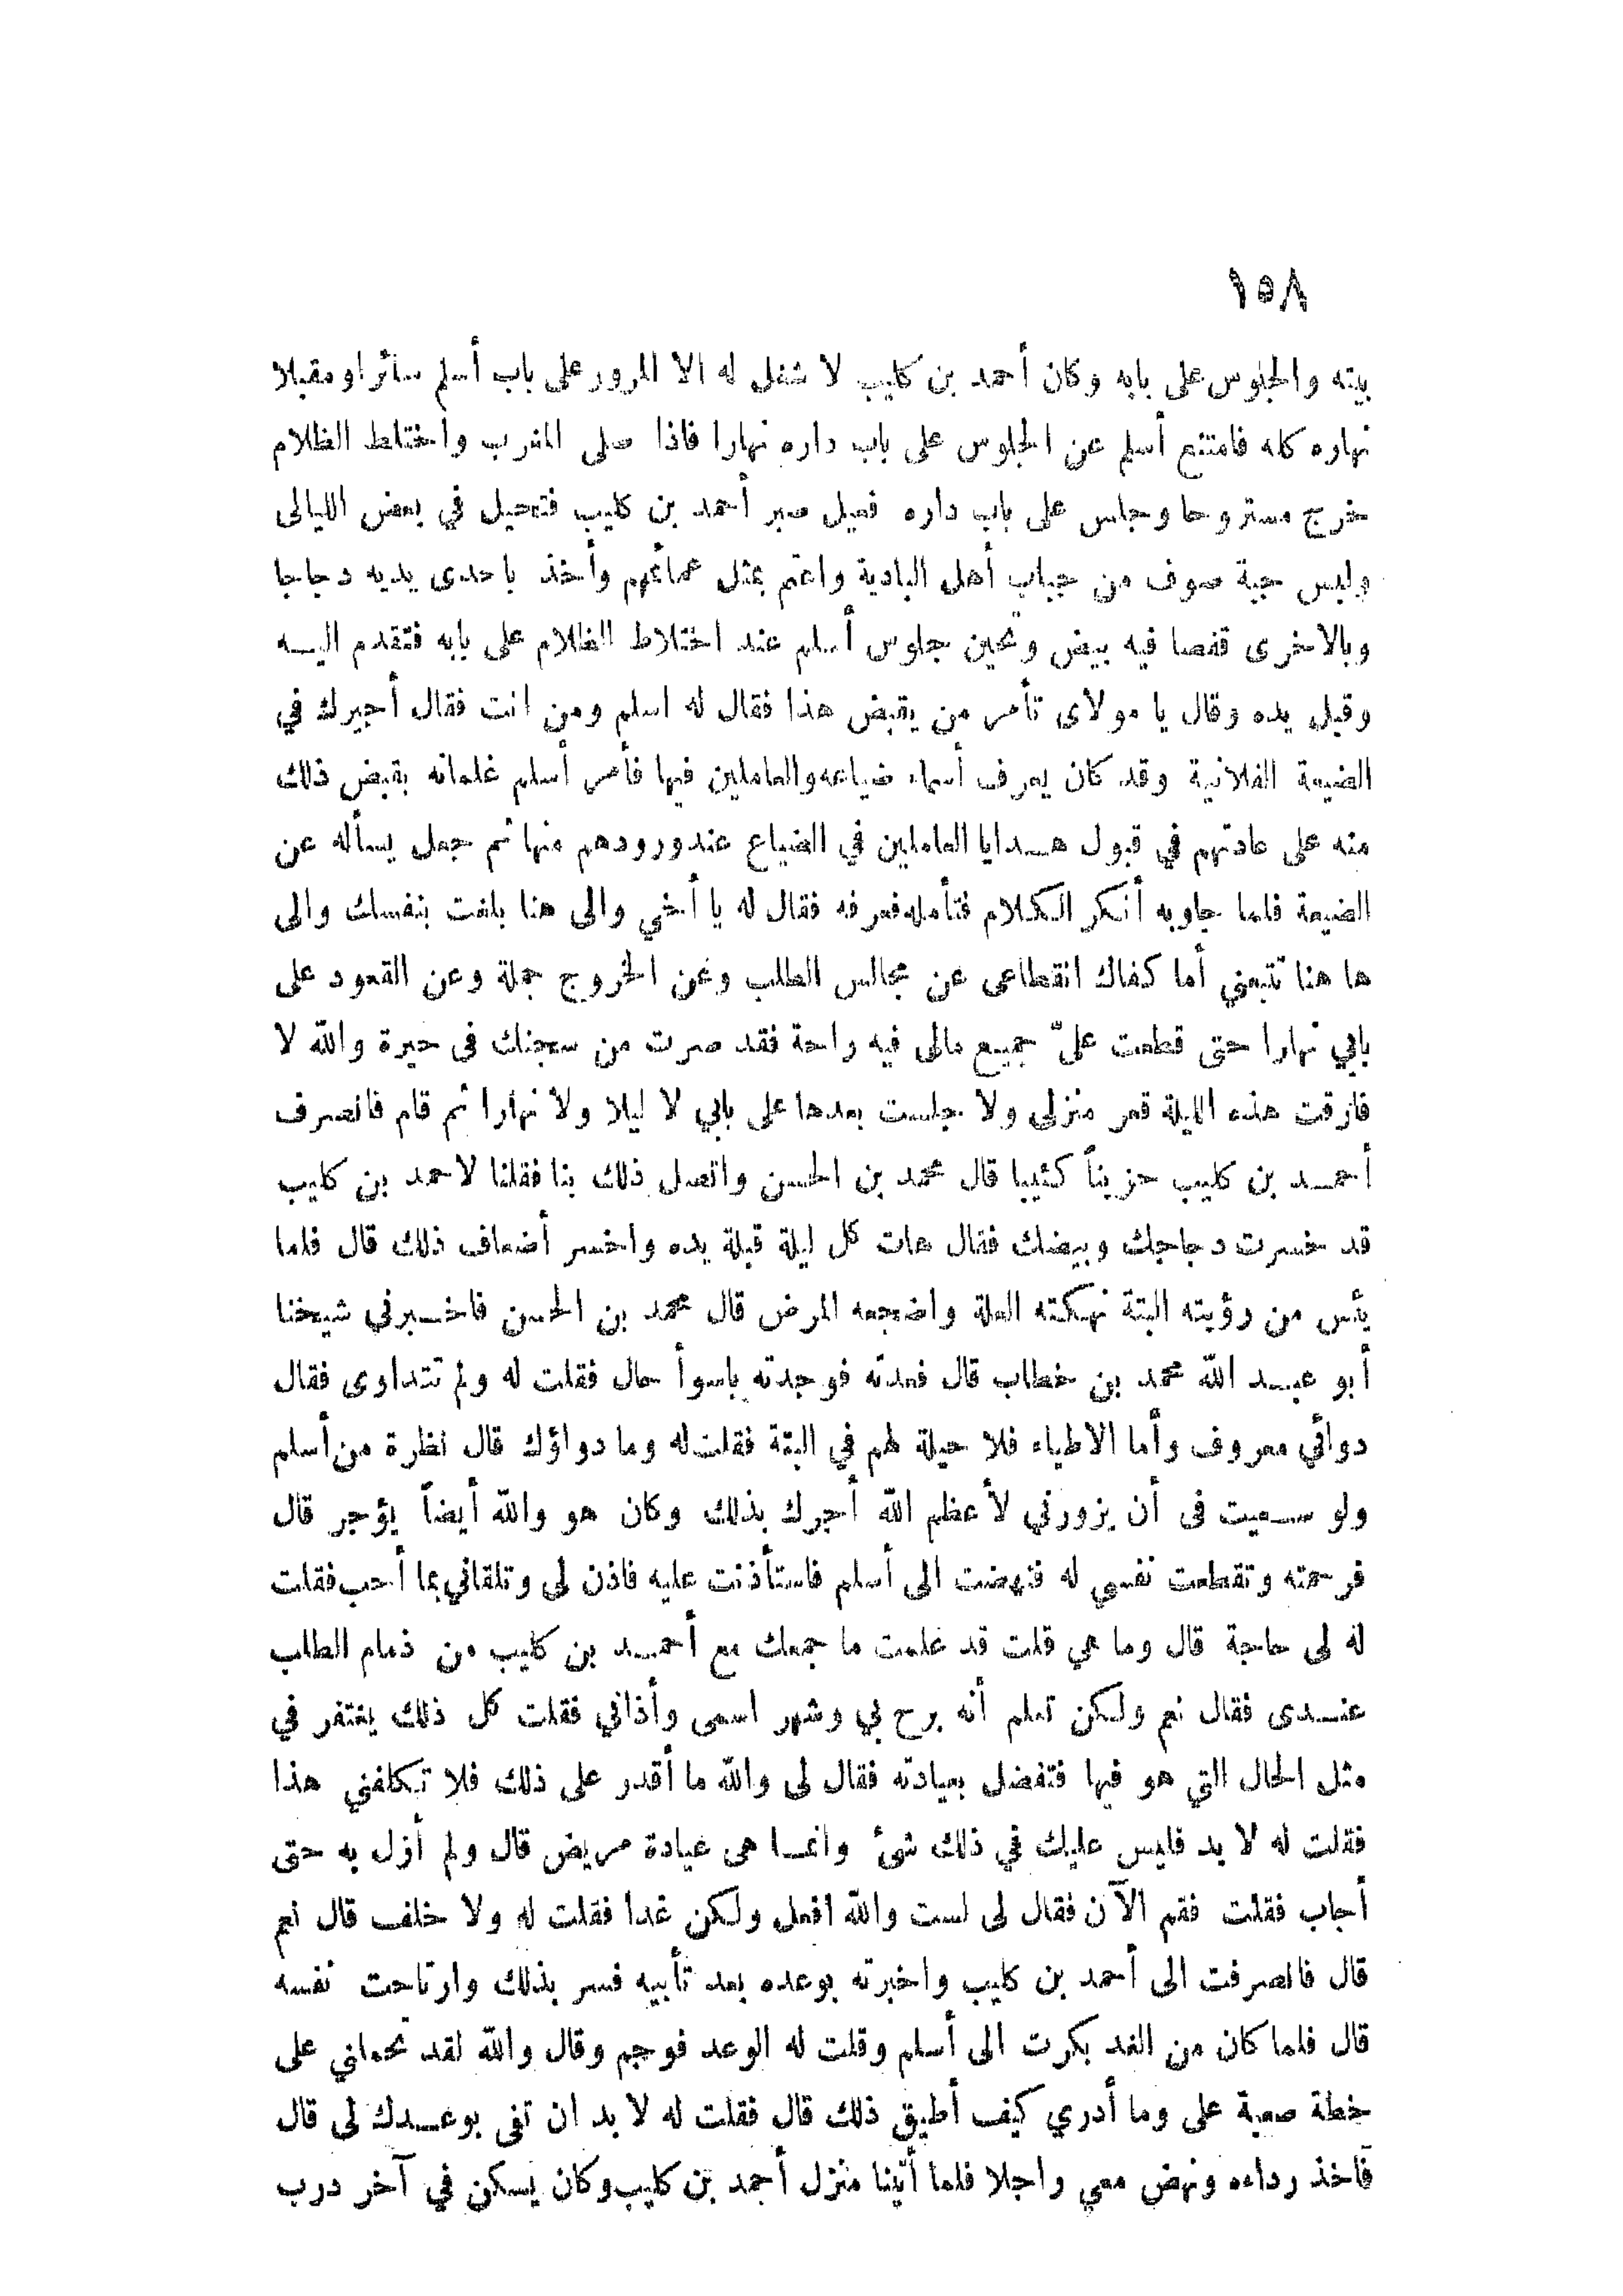 ١٥٨
بيته والجلوس على بابه وكان أحمد بن كليب لا شغل له الا المرور على باب أسلم سائرا ومقبلا
نهاره كله فامتنع أسلم عن الجلوس على باب داره نهارا فاذا صلى المغرب واختلط الظلام
خرج مستروحا وجلس على باب داره فعيل صبر أحمد بن كليب فتحيل في بعض الليالى
ولبس جبة صوف من جباب أهل البادية واعتم بمثل عمائمهم وأخذ باحدى يديه دجاجا
وبالاخرى قفصا فيه بيض وتحين جلوس أسلم عند اختلاط الظلام على بابه فتقدم اليه
وقبل يده وقال يا مولاى تأمر من يقبض هذا فقال له اسلم ومن انت فقال أجيرك في
الضيعة الفلانية وقد كان يعرف أسماء ضياعه والعاملين فيها فأمر أسلم غلمانه بقبض ذلك
منه على عادتهم في قبول هدايا العاملين في الضياع عند ورودهم منها ثم جعل يسأله عن
الضيعة فلما جاوبه أنكر الكلام فتأمله فعرفه فقال له يا أخي والى هنا بلغت بنفسك والى
ها هنا تتبعني أما كفاك انقطاعى عن مجالس الطلب وعن الخروج جملة وعن القعود على
بابي نهارا حتى قطعت علىّ جميع مالى فيه راحة فقد صرت من سجنك فى حيرة والله لا
فارقت هذه الليلة قعر منزلى ولا جلست بعدها على بابي لا ليلا ولا نهارا ثم قام فانصرف
أحمد بن كليب حزيناً كئيبا قال محمد بن الحسن واتصل ذلك بنا فقلنا لاحمد بن كليب
قد خسرت دجاجك وبيضك فقال هات كل ليلة قبلة يده واخسر أضعاف ذلك قال فلما
يأس من رؤيته البتة نهكته العلة واضجعه المرض قال محمد بن الحسن فاخبرني شيخنا
أبو عبد الله محمد بن خطاب قال فعدته فوجدته باسوأ حال فقلت له ولم تتداوى فقال
دوائي معروف وأما الاطباء فلا حيلة لهم في البتة فقلت له وما دواؤك قال نظرة من أسلم
ولو سعيت فى أن يزورني لأعظم الله أجرك بذلك وكان هو والله أيضاً يؤجر قال
فرحمته وتقطعت نفسي له فنهضت الى أسلم فاستأذنت عليه فاذن لى وتلقاني بما أحب فقلت
له لى حاجة قال وما هي قلت قد علمت ما جمعك مع أحمد بن كليب من ذمام الطلب
عندى فقال نعم ولكن تعلم أنه برح بي وشهر اسمى وأذاني فقلت كل ذلك يغتفر في
مثل الحال التي هو فيها فتفضل بعيادته فقال لى والله ما أقدر على ذلك فلا تكلفني هذا
فقلت له لا بد فليس عليك في ذلك شئ وانما هى عيادة مريض قال ولم أزل به حتى
أجاب فقلت فقم الآن فقال لى لست والله افعل ولكن غدا فقلت له ولا خلف قال نعم
قال فانصرفت الى أحمد بن كليب واخبرته بوعده بعد تأبيه فسر بذلك وارتاحت نفسه
قال فلما كان من الغد بكرت الى أسلم وقلت له الوعد فوجم وقال والله لقد تحملني على
خطة صعبة على وما أدري كيف أطيق ذلك قال فقلت له لا بد ان تفى بوعدك لى قال
فأخذ رداءه ونهض معي راجلا فلما أتينا منزل أحمد بن كليب وكان يسكن في آخر درب